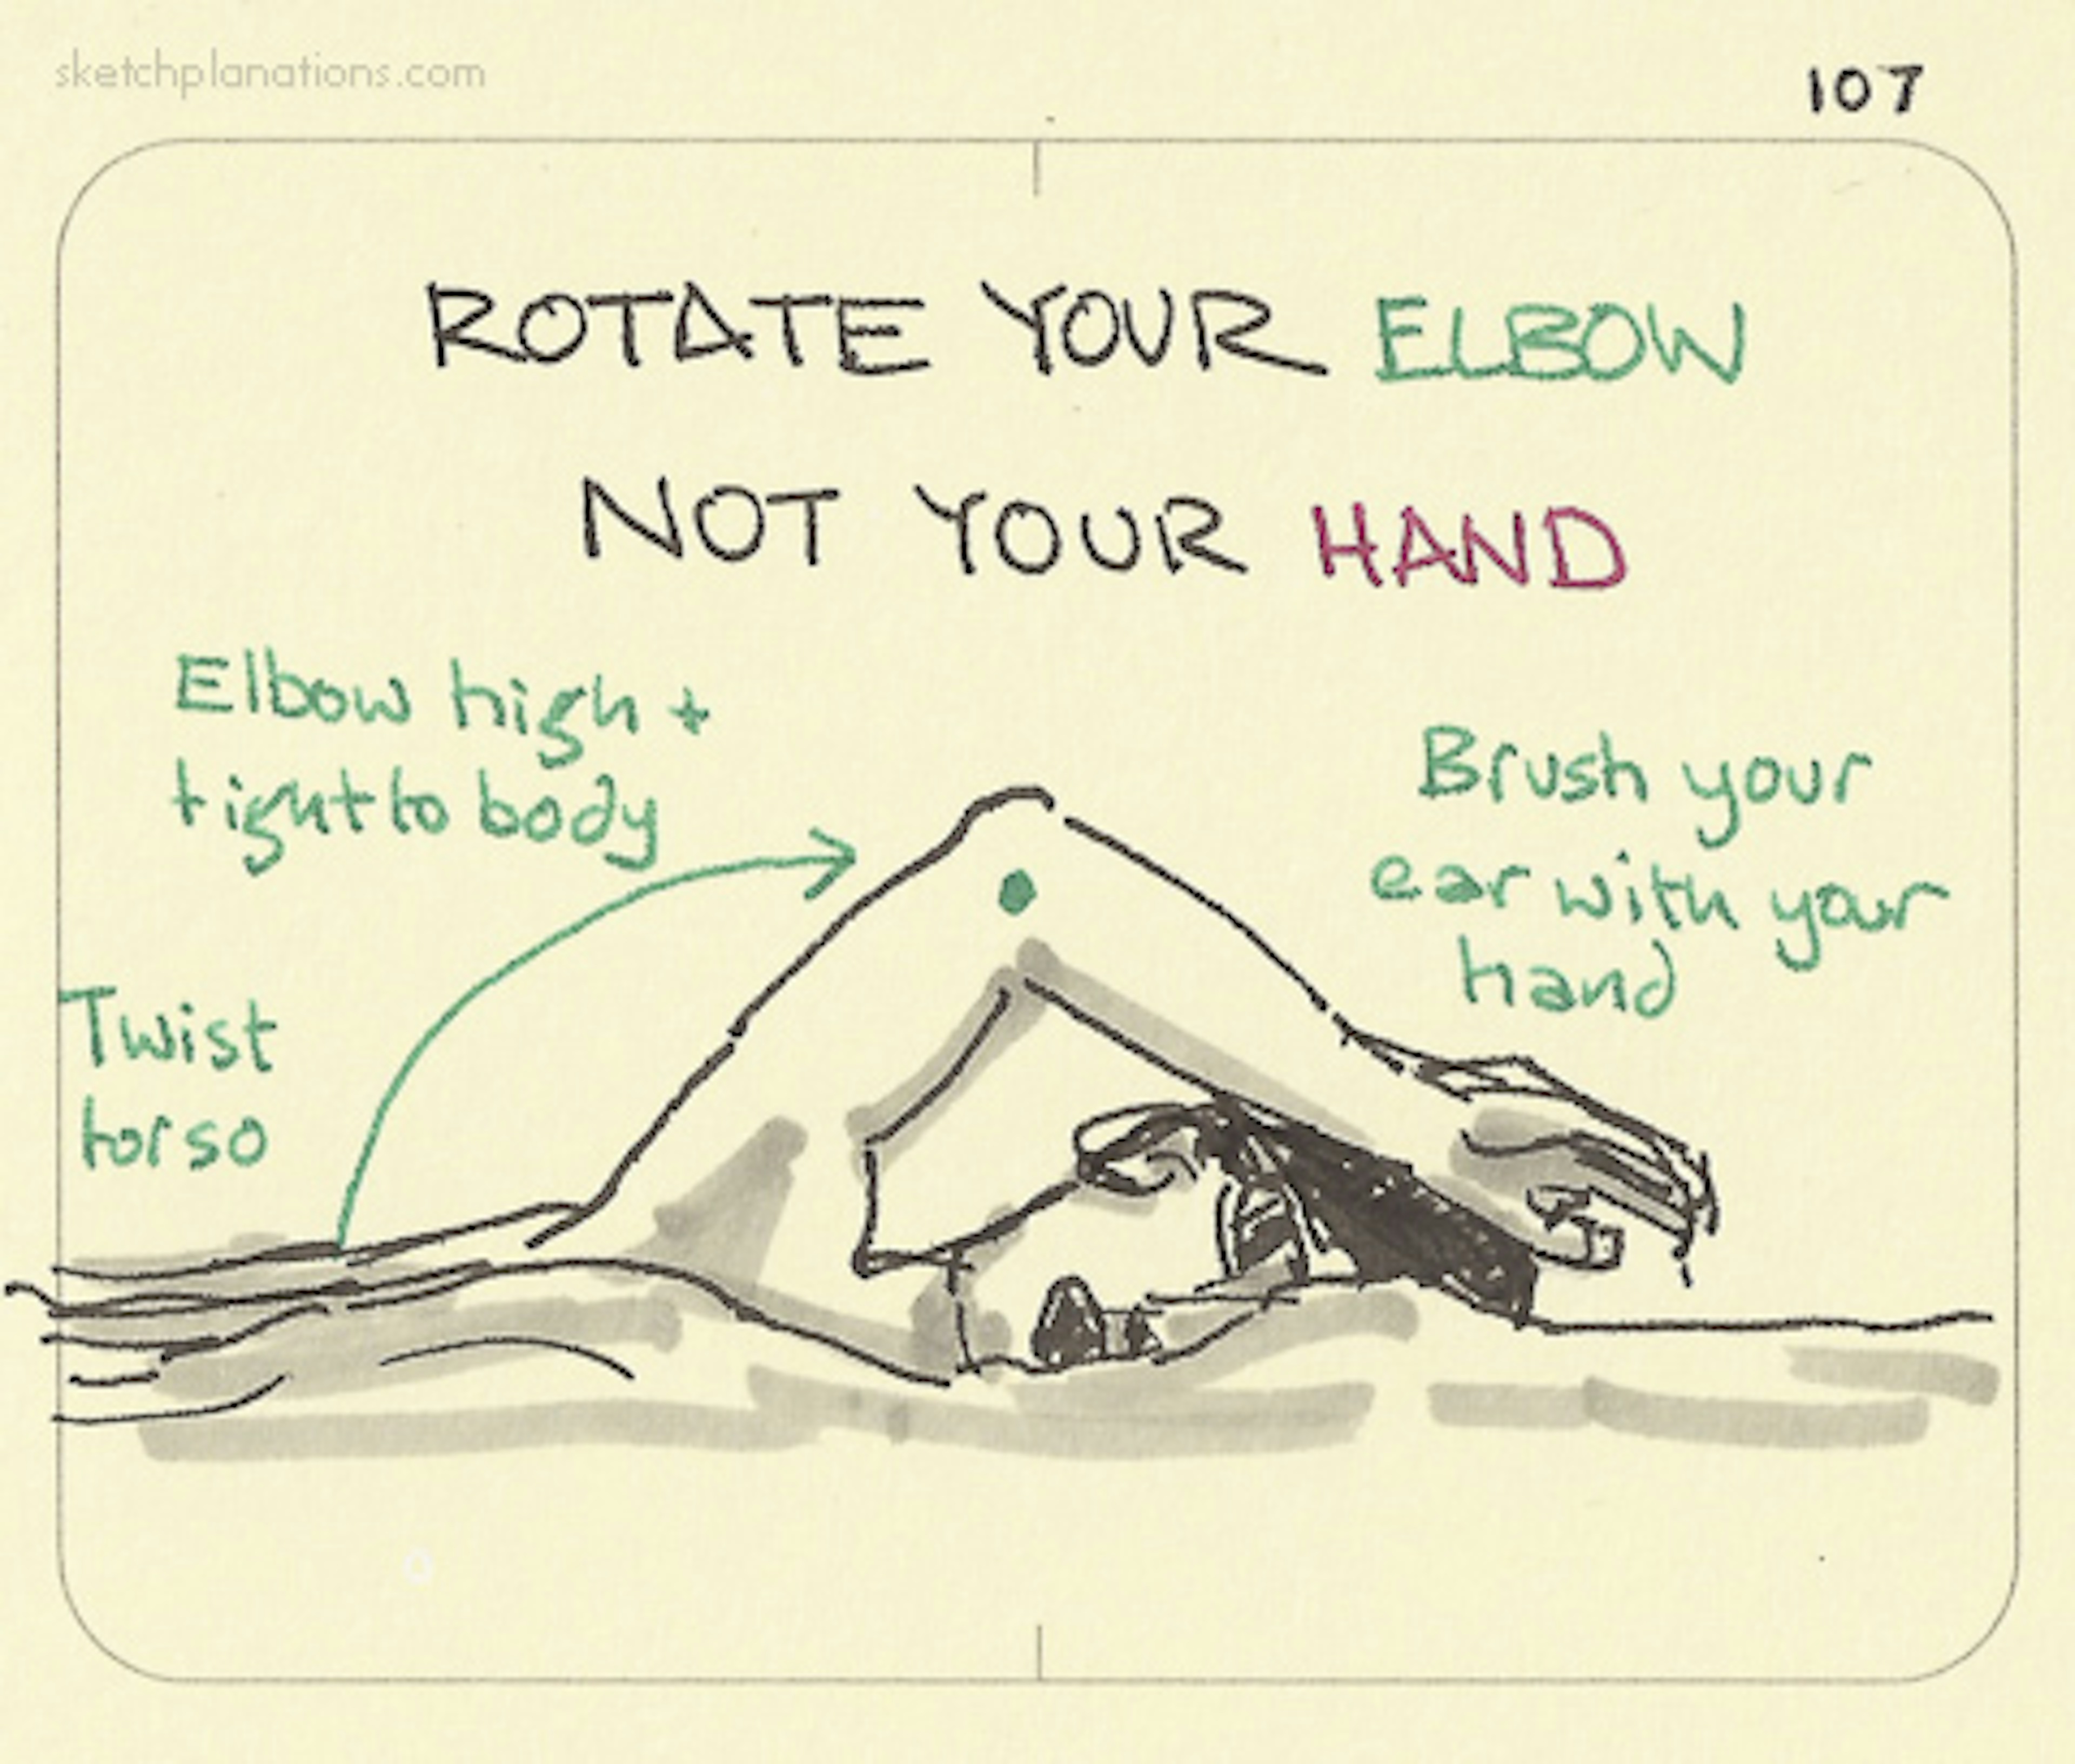 sketchplanations.com
107
ROTATE YOUR ELBOW
NOT YOUR HAND
Elbow high +
tight to body
Brush your
ear with your
hand
Twist
torso